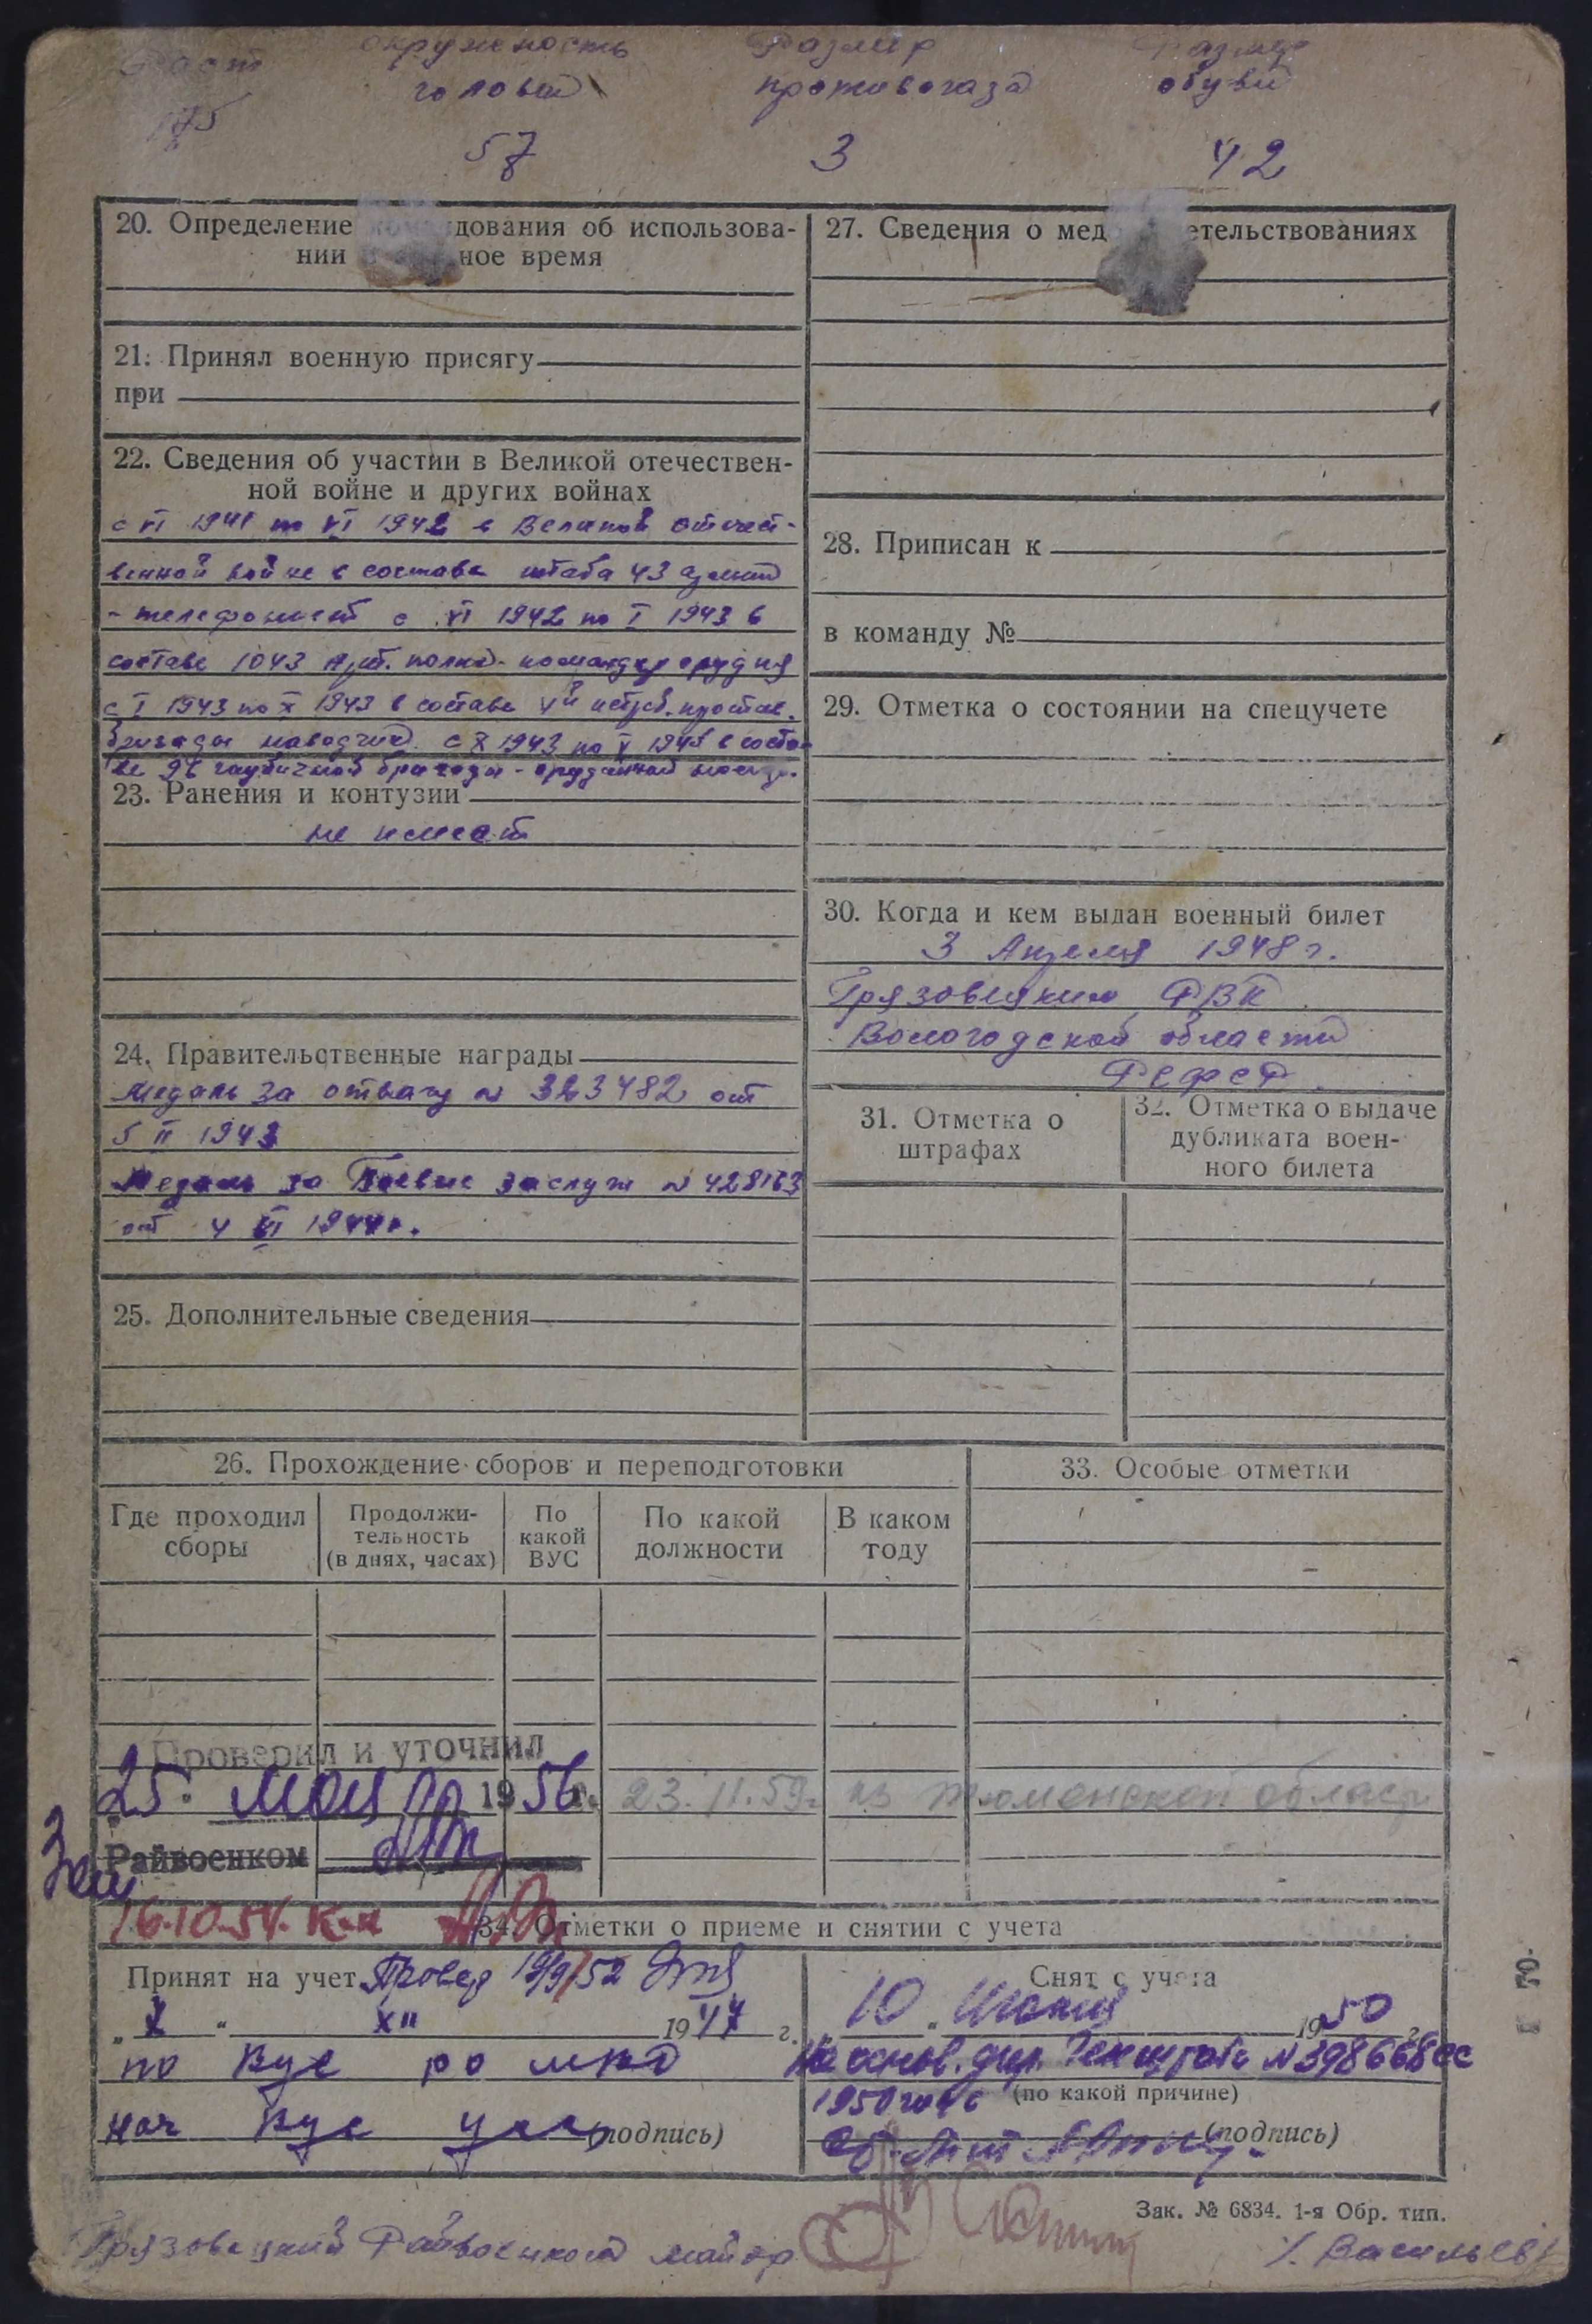 Рост окружность Размер Размер
головы противогаза обуви
175
57 3 42
20. Определение дования об использова-
нии ное время
21. Принял военную присягу
при
22. Сведения об участии в Великой отечествен-
ной войне и других войнах
с VI 1941 по VI 1942 в Великой отечест-
венной войне в составе штаба 43 армии
- телефонист с VI 1942 по I 1943 в
составе 1043 Арт. полка - командир орудия
с I 1943 по X 1943 в составе Vй истреб. против.
бригады наводчик с X 1943 по V 1945 в соста-
ве 96 гаубичной бригады - орудийный
23. Ранения и контузии
не имеет
24. Правительственные награды
Медаль за отвагу N 323482 от
5 II 1943
Медаль за Боевые заслуги N 428163
от 4 VI 1944 г.
25. Дополнительные сведения
27. Сведения о мед етельствованиях
28. Приписан к
в команду №
29. Отметка о состоянии на спецучете
30. Когда и кем выдан военный билет
3 Апреля 1948 г.
Грязовецким РВК
Вологодской области
РСФСР.
31. Отметка о
штрафах
32. Отметка о выдаче
дубликата воен-
ного билета
26. Прохождение сборов и переподготовки
Где проходил
сборы
Продолжи-
тельность
(в днях, часах)
По
какой
ВУС
По какой
должности
В каком
году
33. Особые отметки
Проверил и уточнил
25. мая 1956 г. 23.11.59. из Тюменской области
Райвоенком
16.10.54.
34. Отметки о приеме и снятии с учета
Принят на учет Провер 19/9/52
„ X “ XII 1947 г.
по Вус
нач Вус (подпись)
Снят с учета
„10“ Июня 1950 г.
На основ. дир. Генштаба N 398668сс
1950 года (по какой причине)
(подпись)
Зак. № 6834. 1-я Обр. тип.
Грязовецкий Райвоенком майор Васильев